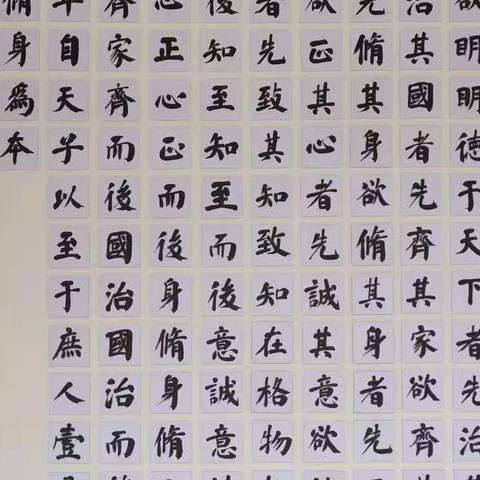 欲明明德于天下者先治
治其國者先齊其家欲齊
先脩其身欲脩其身者先
欲正其心者先誠其意欲
者先致其知致知在格物
後知至知至而後意誠意
心正心正而後身脩身脩
齊家齊而後國治國治而
平自天子以至于庶人壹
脩身為本